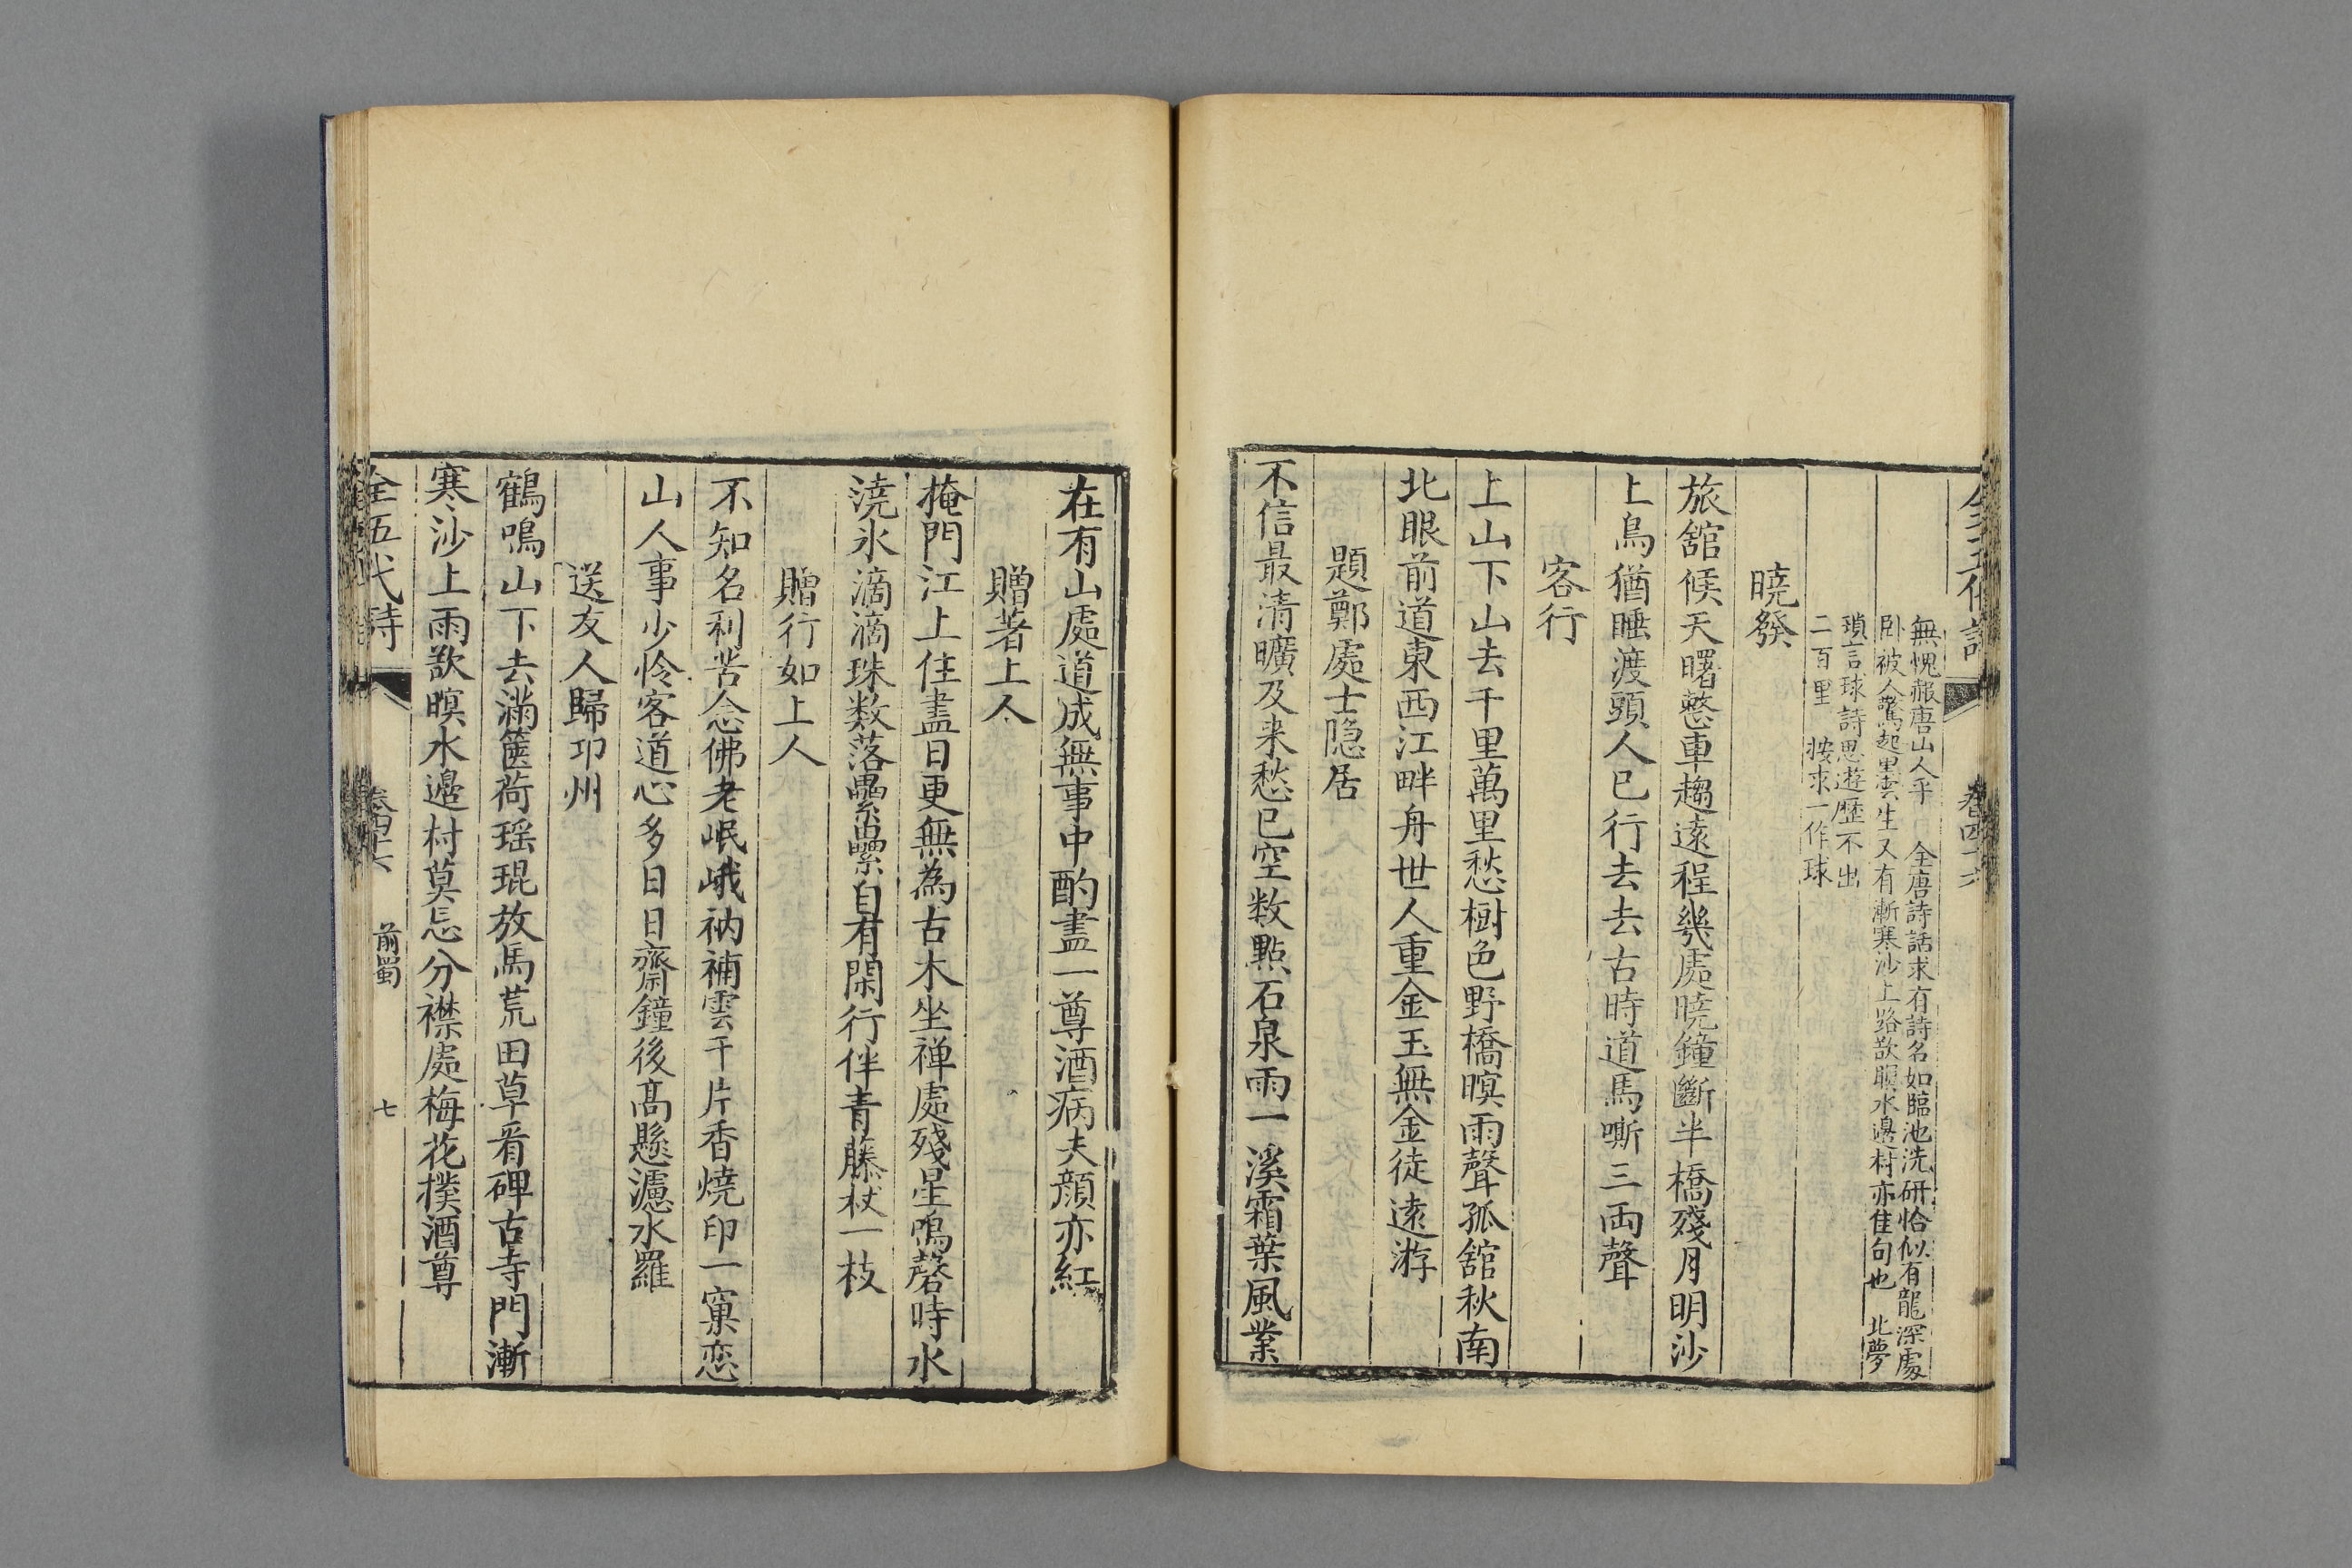 全五代詩 卷四十六
無愧赧唐山人乎 全唐詩話求有詩名如臨池洗研恰似有龍深處
卧被人驚起黑雲生又有漸寒沙上路欲暝水邊村亦佳句也 北夢
瑣言球詩思遊歷不出
二百里 按求一作球
曉發
旅舘候天曙整車趨遠程幾處曉鐘斷半橋殘月明沙
上鳥猶睡渡頭人已行去去古時道馬嘶三两聲
客行
上山下山去千里萬里愁樹色野橋暝雨聲孤舘秋南
北眼前道東西江畔舟世人重金玉無金徒遠游
題鄭處士隐居
不信最清曠及来愁已空数點石泉雨一溪霜葉風業
在有山處道成無事中酌盡一尊酒病夫顏亦紅
贈著上人
掩門江上住盡日更無為古木坐禅處殘星鳴磬時水
澆氷滴滴珠数落纍纍自有閑行伴青藤杖一枝
贈行如上人
不知名利苦念佛老岷峨衲補雲千片香燒印一窠恋
山人事少怜客道心多日日齋鐘後髙懸濾水羅
送友人歸卭州
鶴鳴山下去滿篋荷瑶琨放馬荒田草看碑古寺門漸
寒沙上雨欲暝水邊村莫忘分襟處梅花撲酒尊
全五代詩 卷四十六 前蜀 七